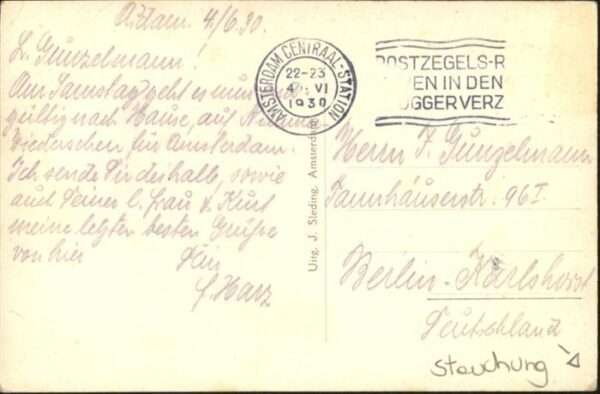 A'dam. 4/6.30.
L. Gunzelmann!
Am Samstag geht es nun
gültig nach Hause, auf
Wiedersehen, für Amsterdam.
Ich sende Dir deshalb, sowie
auch Deiner l. Frau u. Kurt
meine letzten besten Grüße
von hier
Dein
Harz
AMSTERDAM CENTRAAL-STATION
22-23
4 VI
1930
POSTZEGELS-R
EN IN DEN
GGERVERZ
Uitg. J. Sleding, Amsterdam
Herrn F. Gunzelmann
Tannhäuserstr. 96 I.
Berlin-Karlshorst
Deutschland
Stauchung